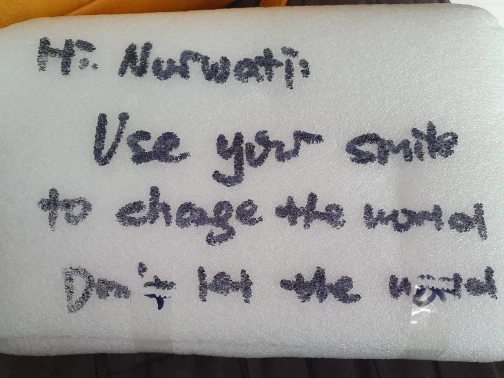 Hi. Nurwati:
Use your smile
to change the world
Don't let the world